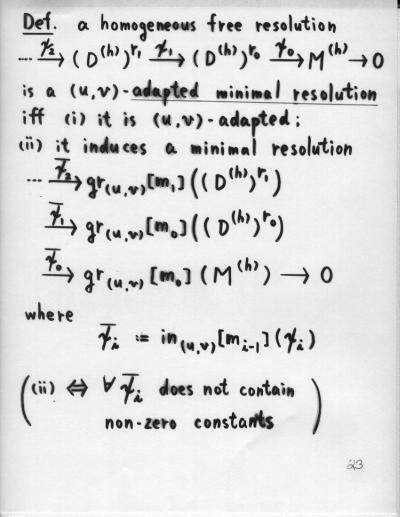 Def. a homogeneous free resolution
... →ψ̄₂ (D^(h))^r₁ →ψ₁ (D^(h))^r₀ →ψ₀ M^(h) → 0
is a (u,v)-adapted minimal resolution
iff (i) it is (u,v)-adapted;
(ii) it induces a minimal resolution
... →ψ̄₂ gr_(u,v)[m₁]((D^(h))^r₁)
→ψ̄₁ gr_(u,v)[m₀]((D^(h))^r₀)
→ψ̄₀ gr_(u,v)[m₀](M^(h)) → 0
where
ψ̄ᵢ := in_(u,v)[m_{i-1}](ψᵢ)
((ii) ⇔ ∀ ψ̄ᵢ does not contain
non-zero constants)
23